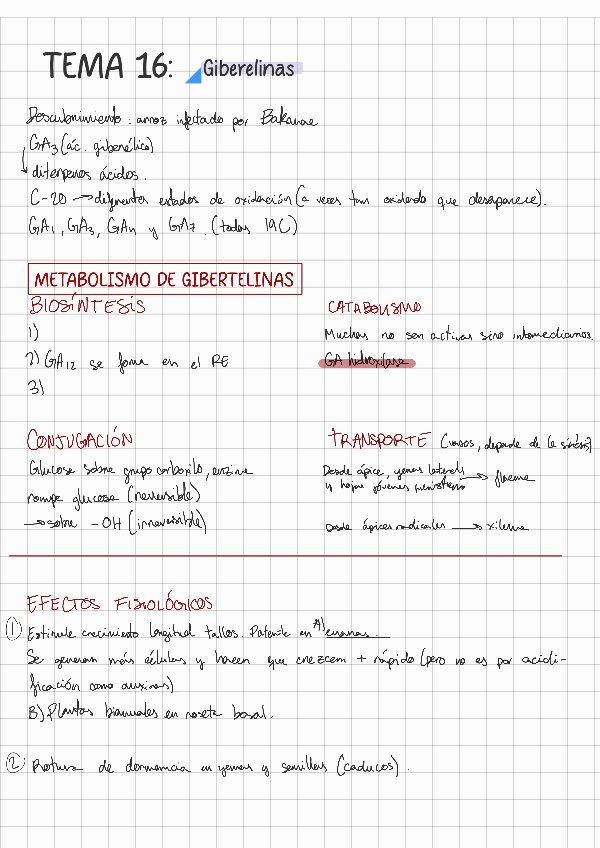 TEMA 16: Giberelinas
Descubrimiento: arroz infectado por Bakanae
GA3 (ác. giberélico)
diterpenos ácidos.
C-20 → diferentes estados de oxidación (a veces tan oxidado que desaparece).
GA1, GA3, GA4 y GA7. (todas 19C)
METABOLISMO DE GIBERTELINAS
BIOSÍNTESIS
1)
2) GA12 se forma en el RE
3)
CATABOLISMO
Muchas no son activas sino intermediarios.
GA hidroxilasa
CONJUGACIÓN
Glucosa sobre grupo carboxilo, enzima
rompe glucosa (reversible)
→ sobre -OH (irreversible)
TRANSPORTE (vasos, depende de la síntesis)
Desde ápice, yemas laterals → floema
y hojas jóvenes
Desde ápices radicales → xilema
EFECTOS FISIOLÓGICOS
1 Estimula crecimiento longitud tallos. Patente en A) enanas.
Se generan más células y hacen que crezcan + rápido (pero no es por acidi-
ficación como auxinas)
B) Plantas bianuales en roseta basal.
2 Rotura de dormancia en yemas y semillas (caducos).